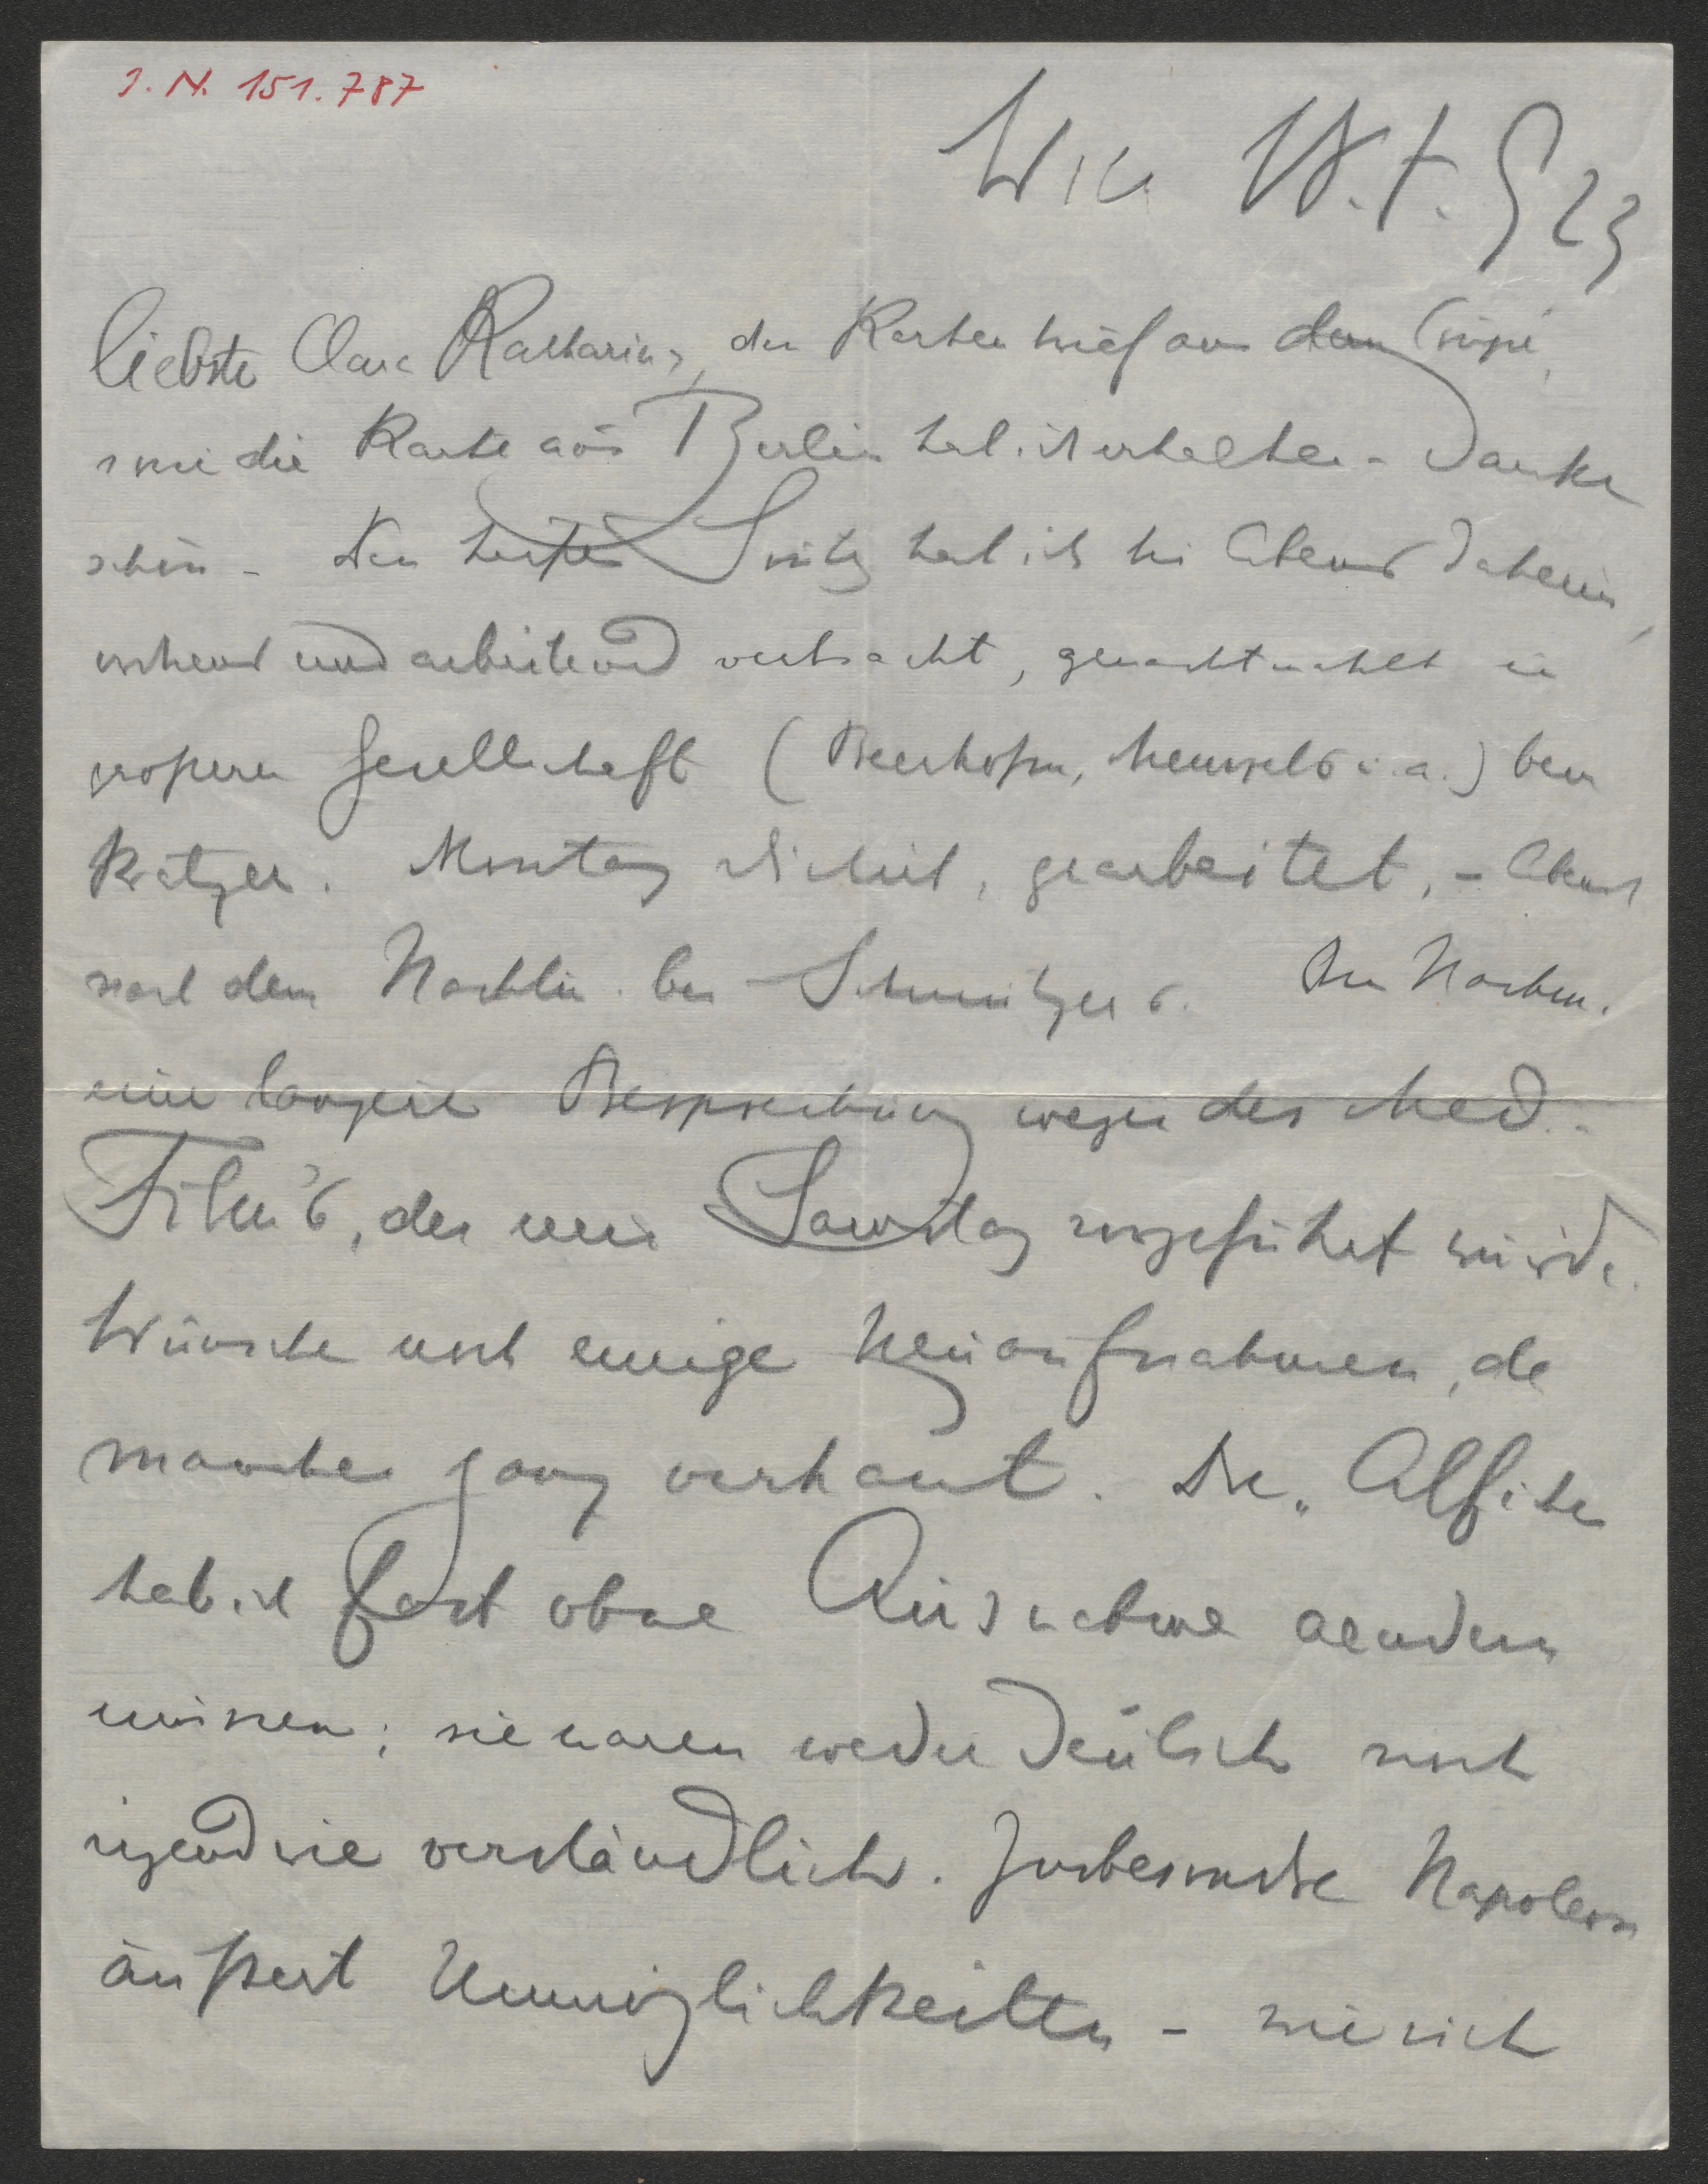 I. N. 151.787
Wien 18. 9. 23
liebste Clara Katharina, den Kartenbrief aus dem Coupé,
sowie die Karte aus Berlin hab ich erhalten. Danke
schön – Den Sonntag hab ich bis Abend daheim,
und arbeitend verbracht, genachtmahlt in
größerer Gesellschaft (Beerhofm, u. a.) beim
Montag dictirt, gearbeitet, – Abend
nach dem Nachtm. bei Schmutzers. Im Nachm.
eine längere Besprechung wegen des Med.-
Film's, der mir Samstag vorgeführt wurde.
Wünsche noch einige Neuaufnahmen, da
manches ganz verhaut. Die „Aufschr
hab ich fast ohne Ausnahme aendern
müssen; sie waren weder deutsch noch
irgendwie verständlich. Insbesondre Napoleon
äußert Unmöglichkeiten – wie sich